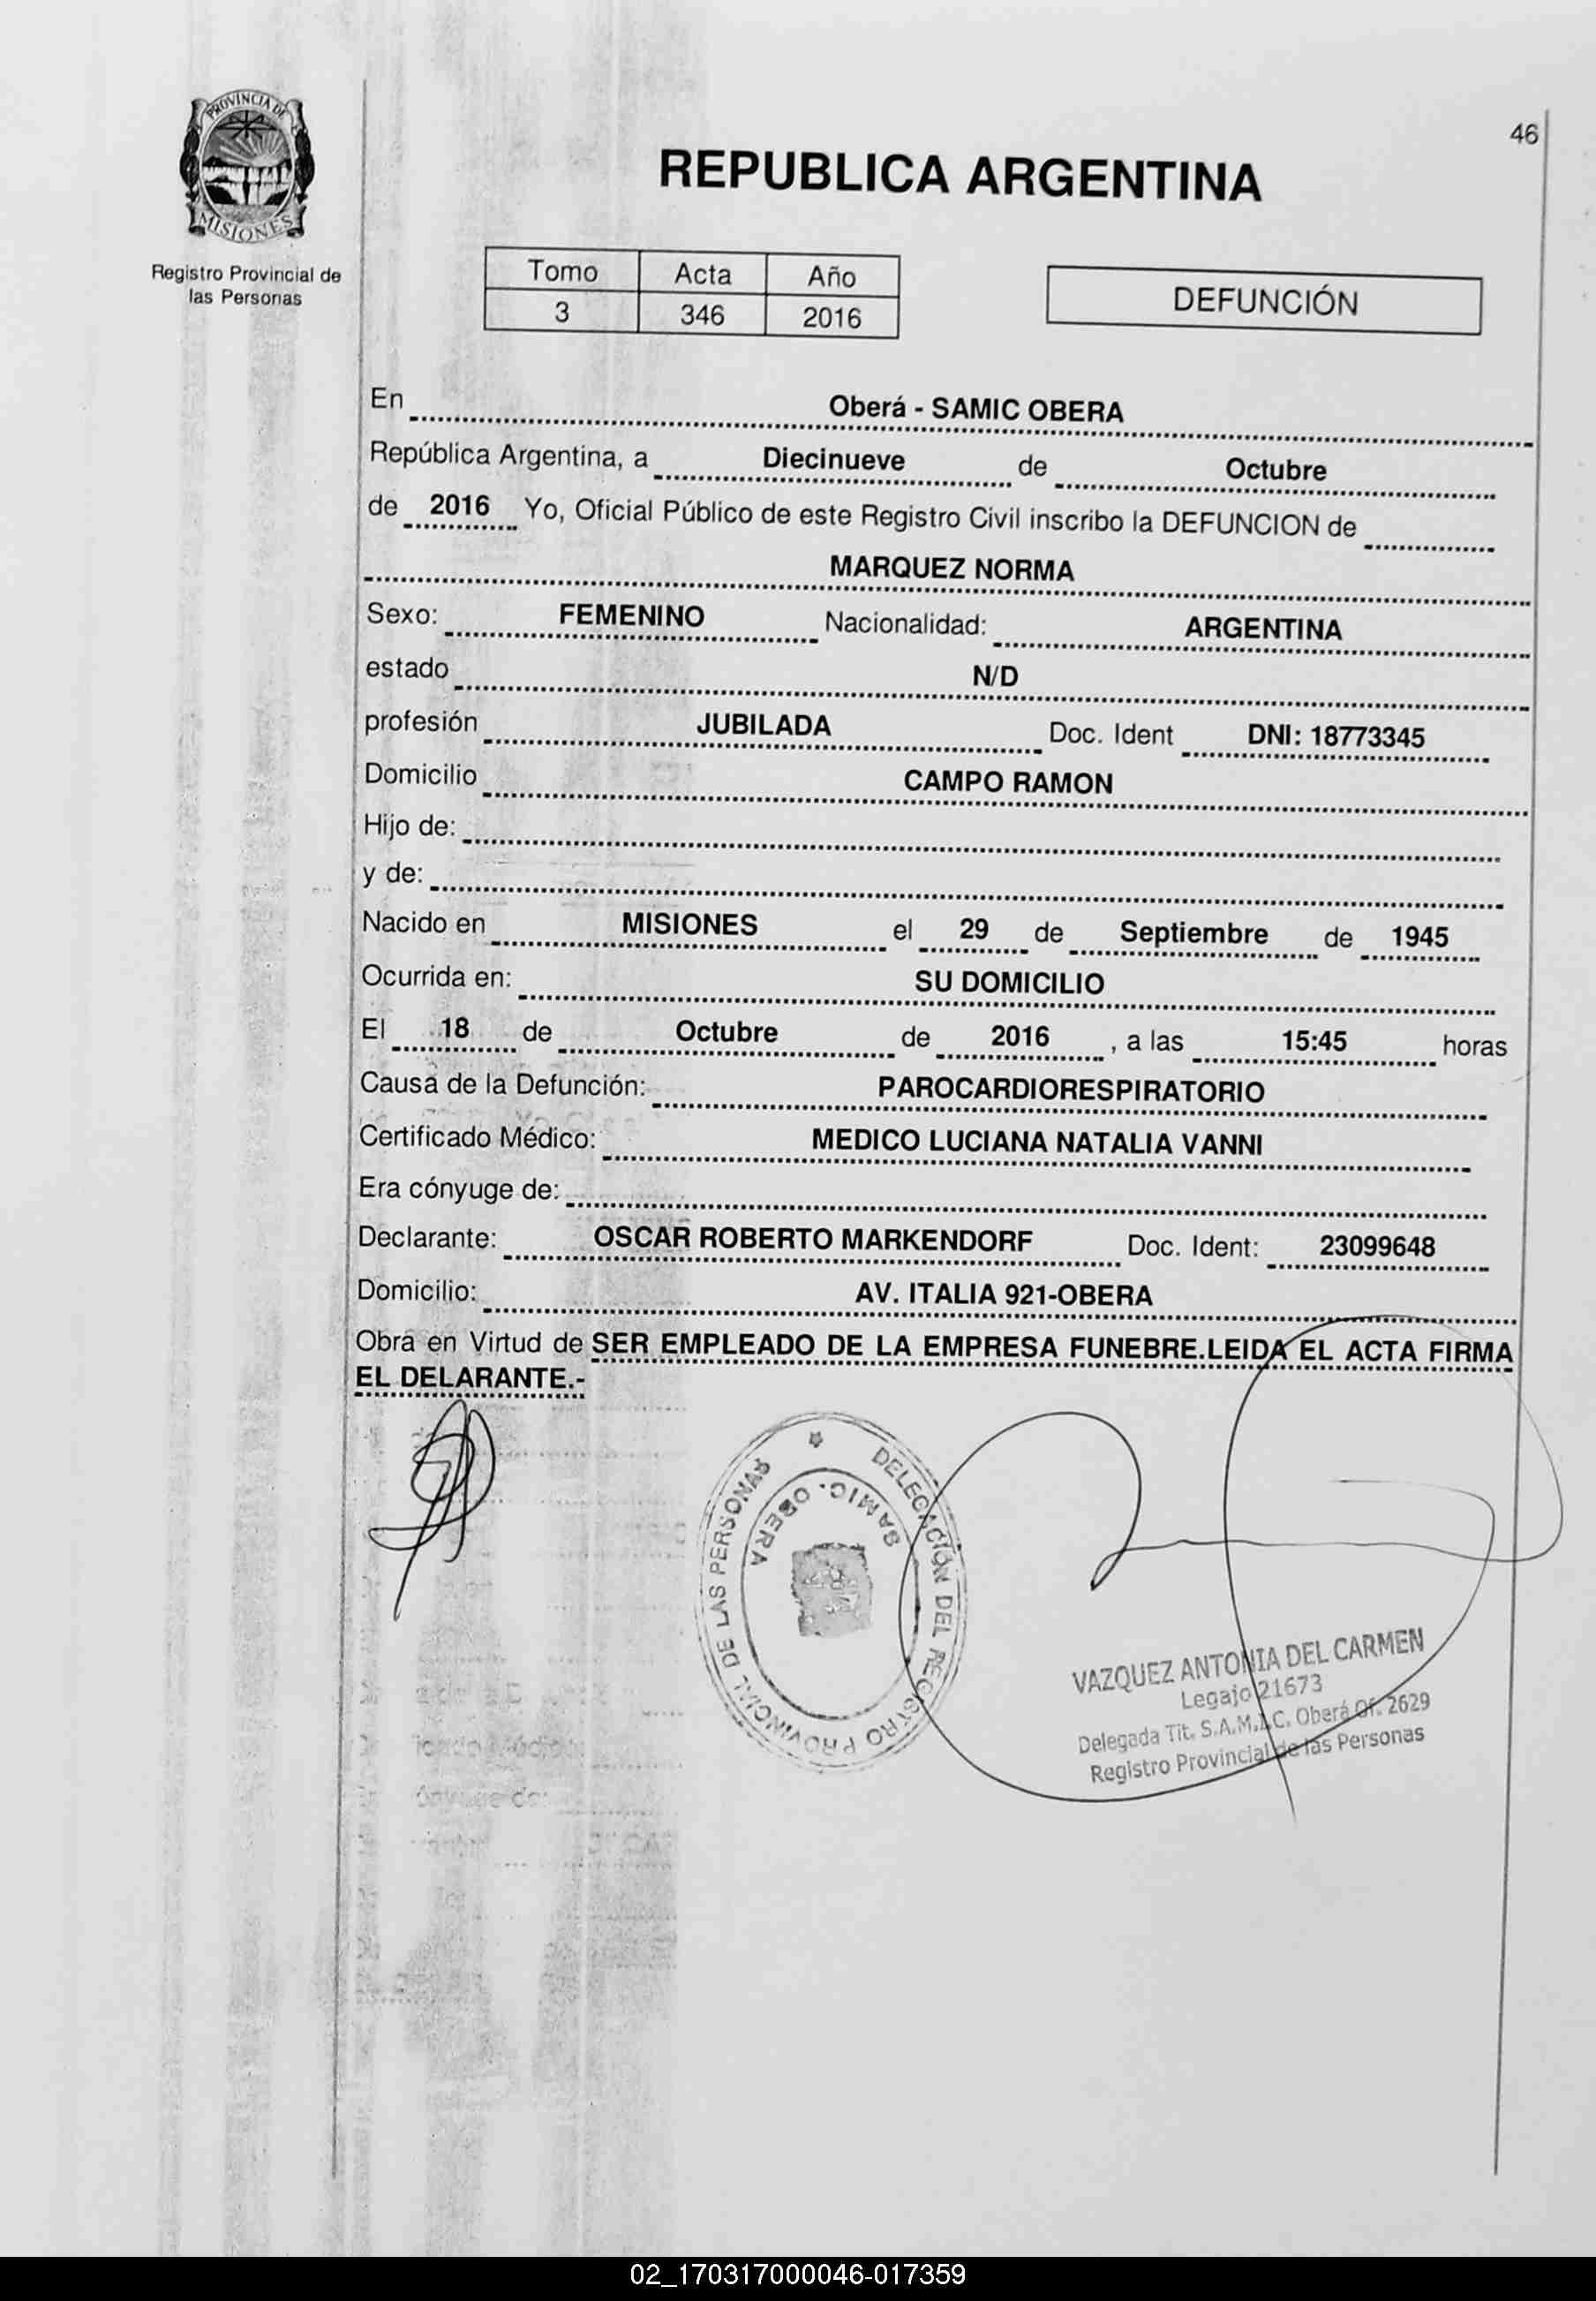 46
PROVINCIA DE
MISIONES
Registro Provincial de
las Personas
REPUBLICA ARGENTINA
Tomo Acta Año
3 346 2016
DEFUNCIÓN
En Oberá - SAMIC OBERA
República Argentina, a Diecinueve de Octubre
de 2016 Yo, Oficial Público de este Registro Civil inscribo la DEFUNCION de
MARQUEZ NORMA
Sexo: FEMENINO Nacionalidad: ARGENTINA
estado N/D
profesión JUBILADA Doc. Ident DNI: 18773345
Domicilio CAMPO RAMON
Hijo de:
y de:
Nacido en MISIONES el 29 de Septiembre de 1945
Ocurrida en: SU DOMICILIO
El 18 de Octubre de 2016 , a las 15:45 horas
Causa de la Defunción: PAROCARDIORESPIRATORIO
Certificado Médico: MEDICO LUCIANA NATALIA VANNI
Era cónyuge de:
Declarante: OSCAR ROBERTO MARKENDORF Doc. Ident: 23099648
Domicilio: AV. ITALIA 921-OBERA
Obra en Virtud de SER EMPLEADO DE LA EMPRESA FUNEBRE.LEIDA EL ACTA FIRMA
EL DELARANTE.-
DELEGACIÓN DEL REGISTRO PROVINCIAL DE LAS PERSONAS
SAMIC. OBERA
VAZQUEZ ANTONIA DEL CARMEN
Legajo 21673
Delegada Tit. S.A.M.I.C. Oberá Of. 2629
Registro Provincial de las Personas
02_170317000046-017359